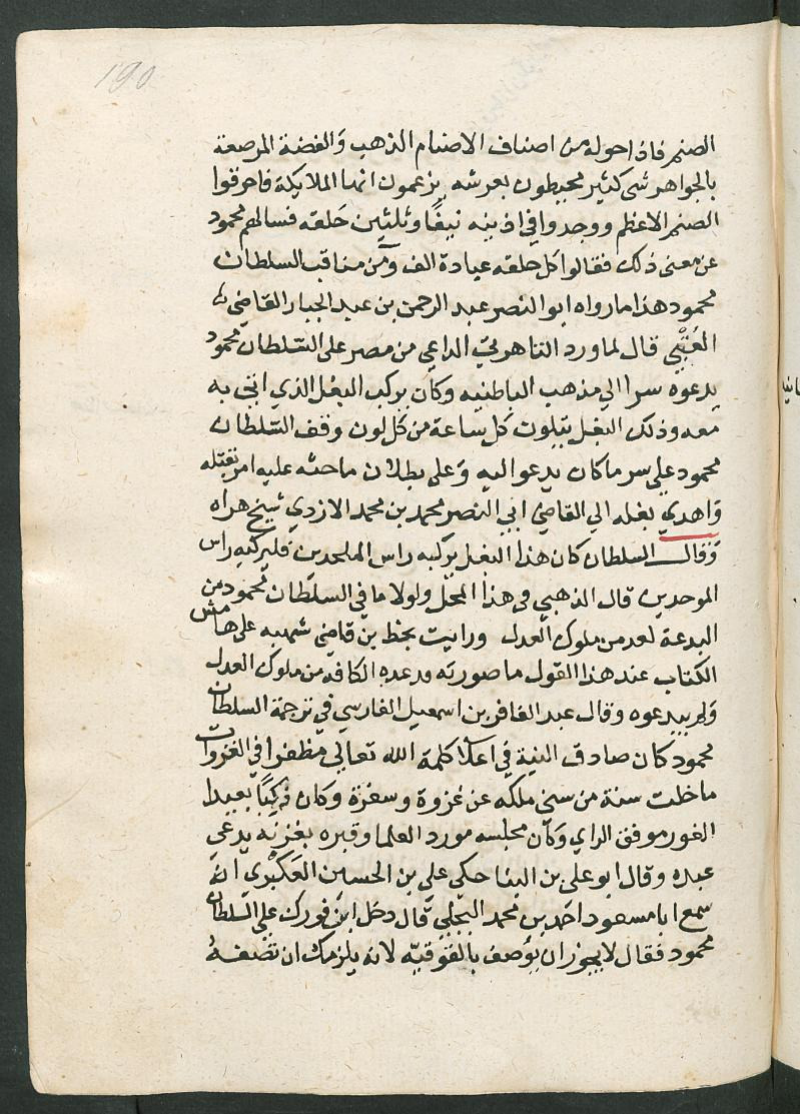 190
الصنم فاذا حوله من اصناف الاصنام الذهب والفضة المرصعة
بالجواهر شى كثير محيطون بعرشه يزعمون انها الملايكة فاحرقوا
الصنم الاعظم ووجدوا في اذنيه نيفًا وثلثين حلقه فسالهم محمود
عن معنى ذلك فقالوا كل حلقه عبادة الف ومن مناقب السلطان
محمود هذا ما رواه ابو النصر عبد الرحمن بن عبد الجبار القاضي
العُتْبي قال لما ورد التاهرتي الداعي من مصر على السّلطان محمود
يدعوه سرا الي مذهب الباطنيه وكان يركب البغل الذي اتى به
معه وذلك البغل يتلون كل ساعة من كل لون وقف السّلطان
محمود علي سر ما كان يدعو اليه وعلى بطلان ما حثه عليه امر بقتله
واهدي بغله الي القاضي ابي النصر محمد بن محمد الازدي شيخ هراه
وقال السلطان كان هذا البغل يركبه راس الملحدين فليركبه راس
الموحدين قال الذهبي فى هذا المحل ولولا ما في السلطان محمود من
البدعة لعد من ملوك العدل ورايت بخط بن قاضي شهبه على هامش
الكتاب عند هذا القول ما صورته وعده الكافه من ملوك العدل
ولم يبدعوه وقال عبد الغافر بن اسمعيل الفارسي في ترجمة السلطان
محمود كان صادق النية في اعلا كلمة الله تعالي مظفرا في الغزوات
ما خلت سنة من سني ملكه عن غزوة وسفرة وكان ذكيًا بعيد
الغور موفق الراي وكان مجلسه مورد العلما وقبره بغزنه يدعي
عبده وقال ابو على بن البنا حكى علي بن الحسين العَكبري انه
سمع ابا مسعود احمد بن محمد البجلي قال دخل ابن فورك علي السلطان
محمود فقال لا يجوز ان يوصف بالفوقيه لانه يلزمك ان تصفهُ